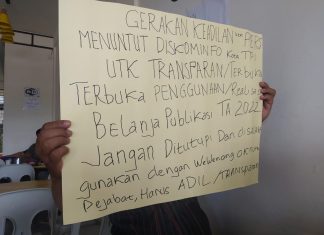 GERAKAN KEADILAN PERS
MENUNTUT DISKOMINFO Kota TPI
UTK TRANSPARAN/Terbuka
TERBUKA PENGGUNAAN/Realisasi
Belanja Publikasi TA 2022
Jangan Ditutupi Dan disalah
gunakan dengan Wewenang oknum
Pejabat, Harus ADIL/TRANSPARAN